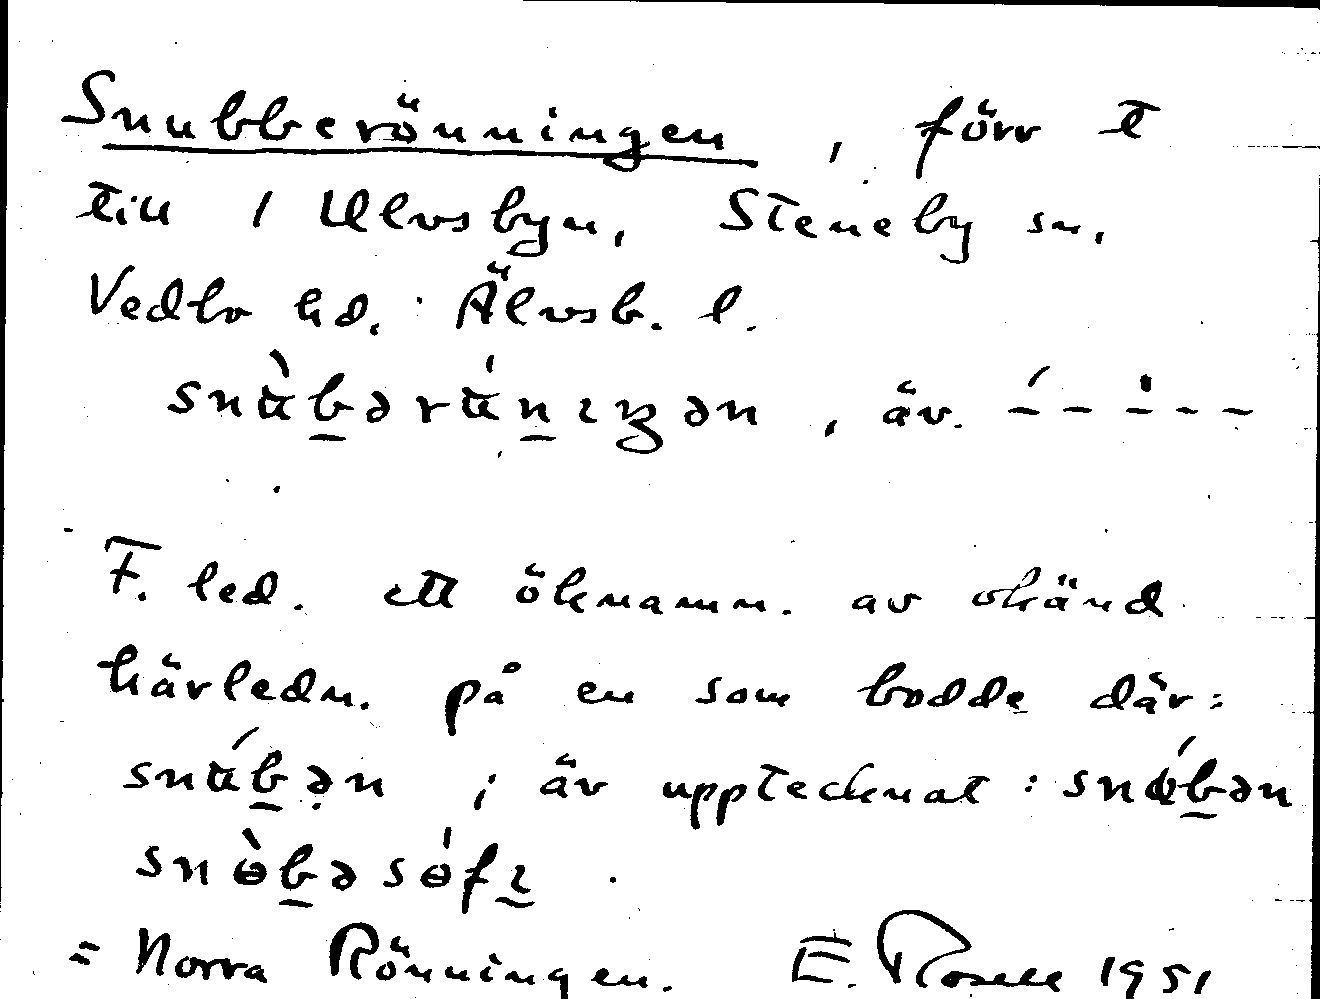 Snubberönningen, förr t
till 1 Ulvsbyn, Steneby sn,
Vedbo hd. Älvsb. l.
F. led. ett öknamn. av okänd
härledn. på en som bodde där:
; äv upptecknat:
= Norra Rönningen. E. Rosell 1951